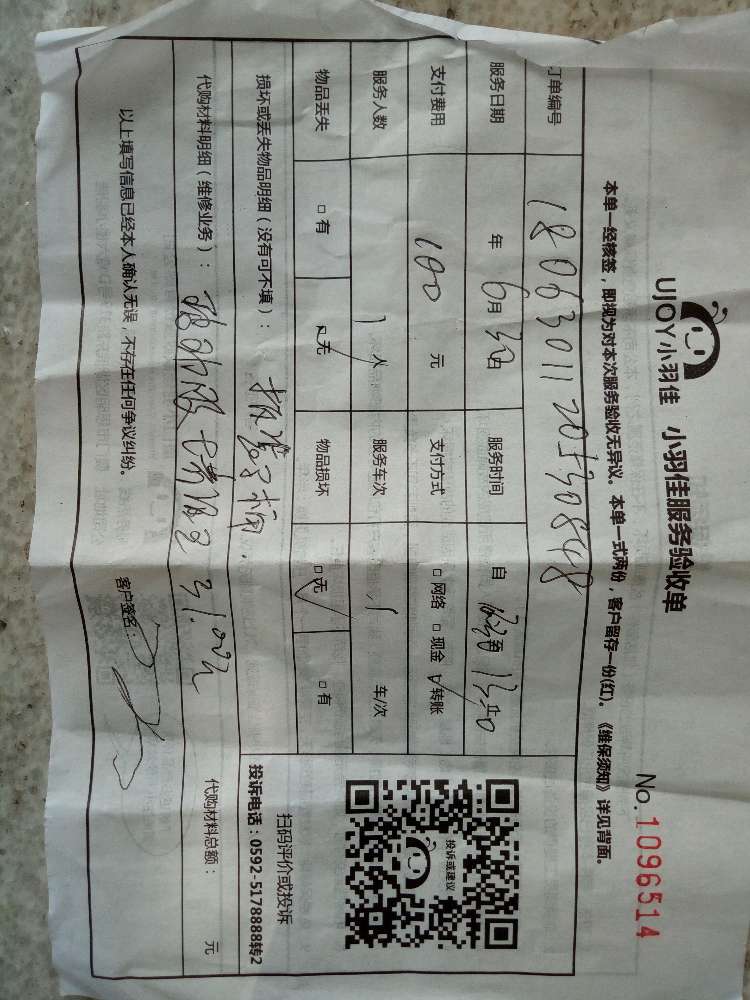 UJOY小羽佳 小羽佳服务验收单
No.1096514
本单一经核签，即视为对本次服务验收无异议。本单一式两份，客户留存一份(红)。《维保须知》详见背面。
订单编号
服务日期 年 6月 30日 服务时间 自 至
支付费用 100 元 支付方式 □网络 □现金 ☑转账
服务人数 1人 服务车次 1 车/次
物品丢失 □有 ☑无 物品损坏 ☑无 □有
损坏或丢失物品明细（没有可不填）：
代购材料明细（维修业务）： 31.00元
代购材料总额： 元
以上填写信息已经本人确认无误，不存在任何争议纠纷。 客户签名：
投诉或建议
扫码评价或投诉
投诉电话：0592-5178888转2